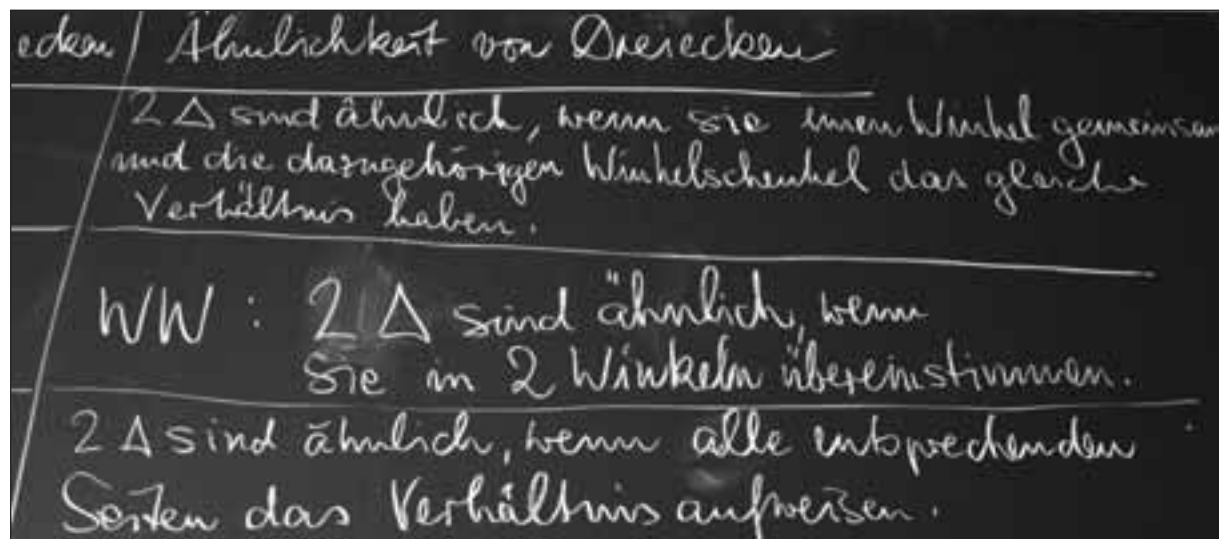 ecken / Ähnlichkeit von Dreiecken
2 Δ sind ähnlich, wenn sie einen Winkel gemeinsam
und die dazugehörigen Winkelschenkel das gleiche
Verhältnis haben.
WW : 2 Δ sind ähnlich, wenn
sie in 2 Winkeln übereinstimmen.
2 Δ sind ähnlich, wenn alle entsprechenden
Seiten das Verhältnis aufweisen.